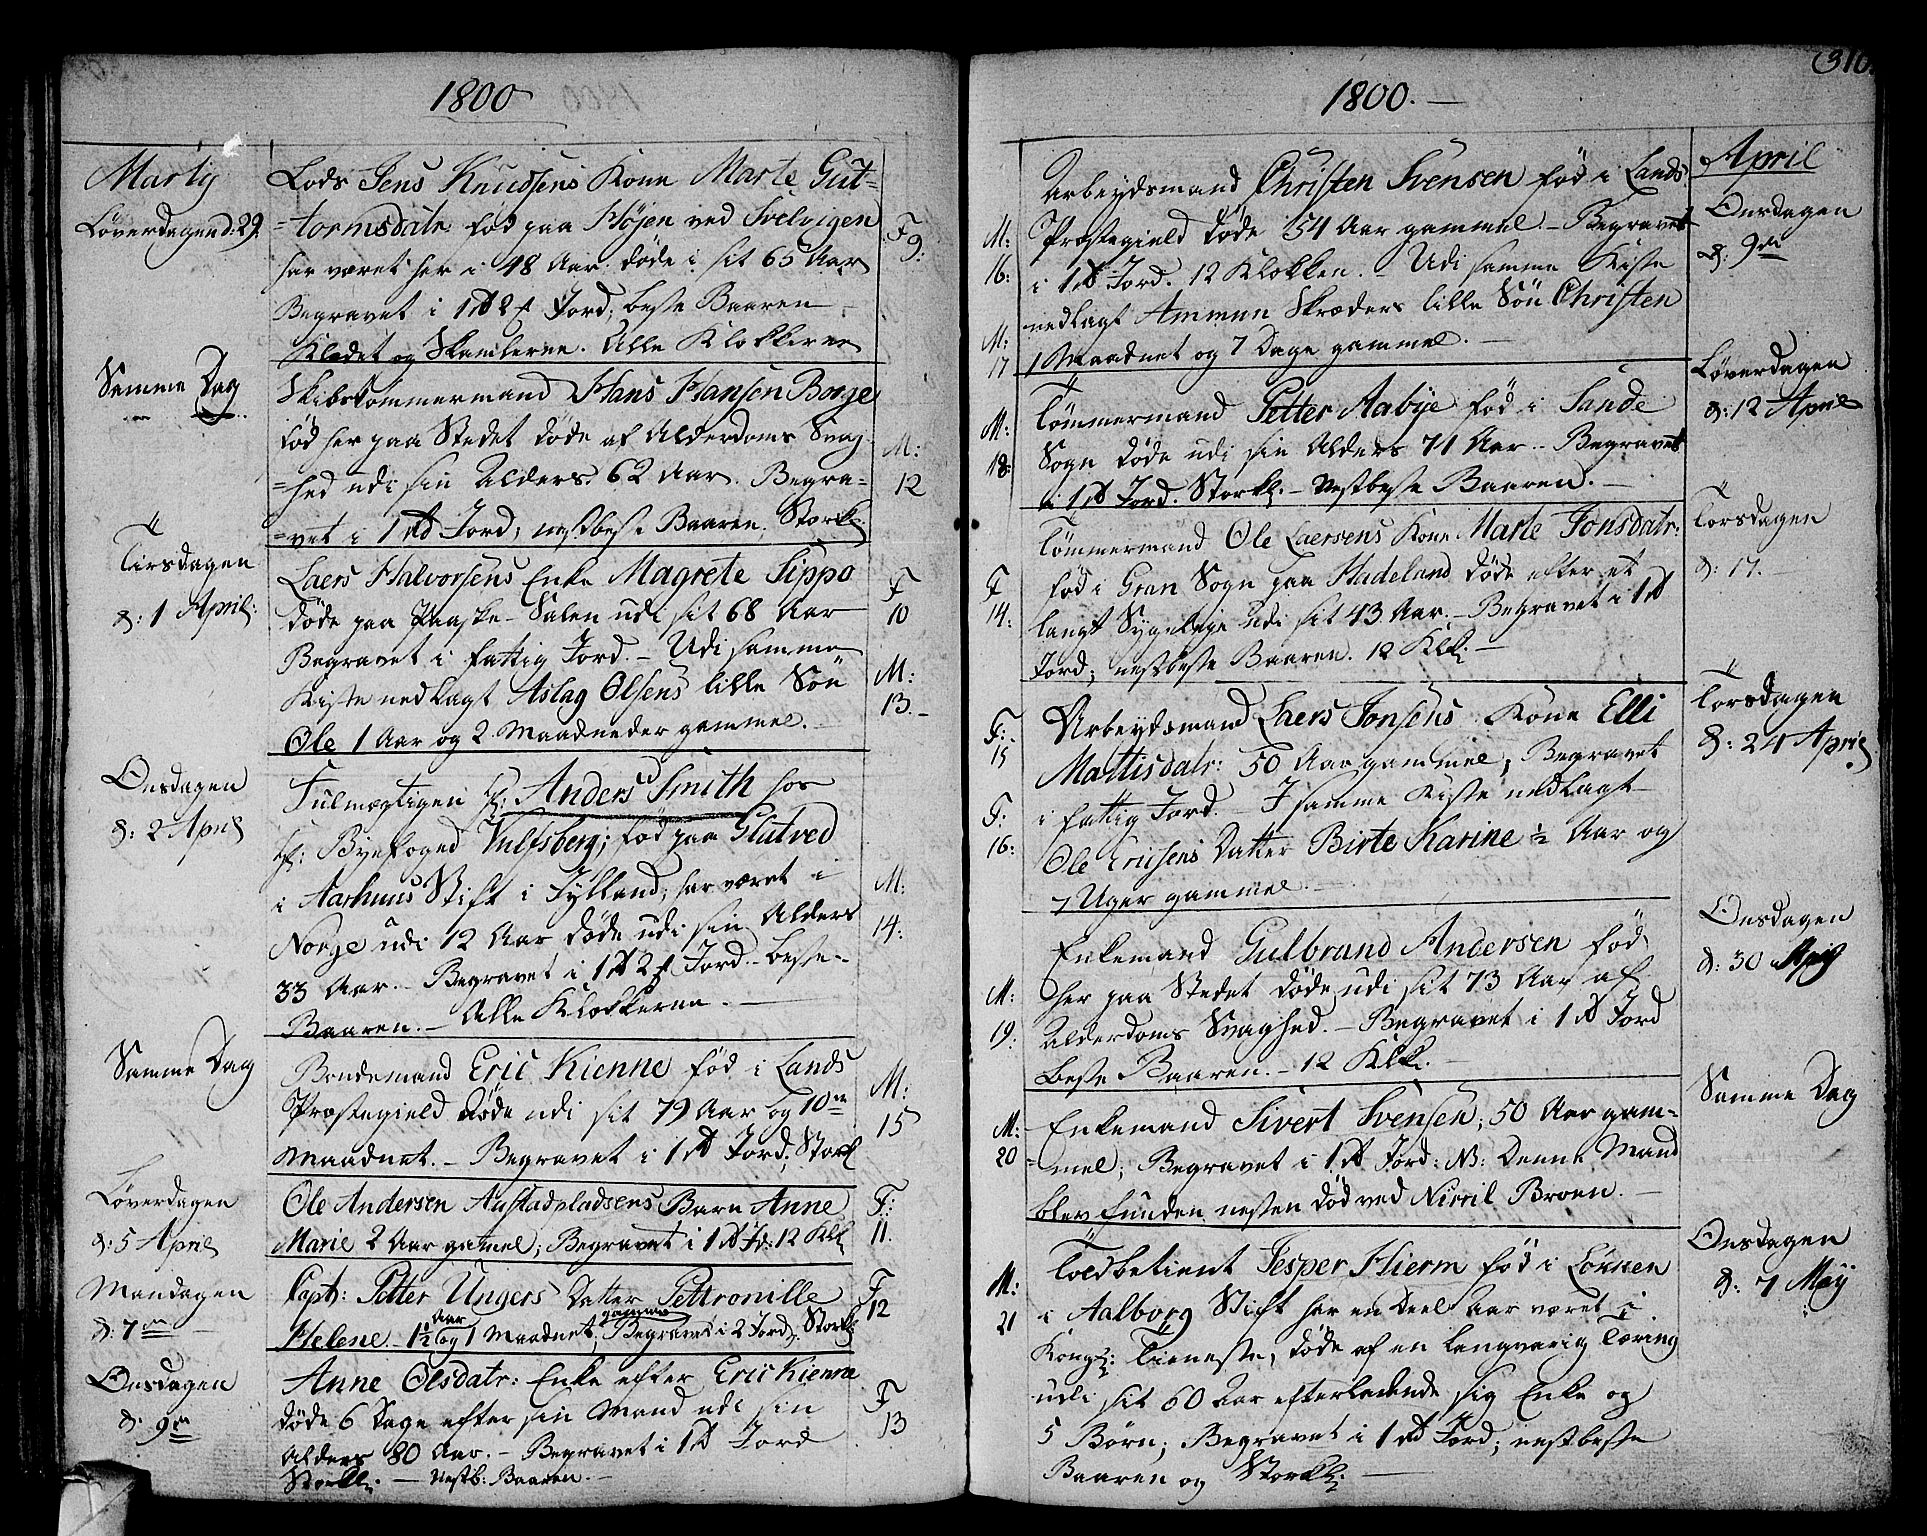 1800
Martij
Løverdagen d: 29.
Lods Jens Knudsens Kone Marte Gut-
=tormsdatr: fød paa Højen ved Svelvigen
har været her i 48 Aar. døde i sit 65 Aar
Begravet i 1 rd 2 f Jord, beste Baaren
Klædet og Skamlerne. Alle Klokkerne
F
9:
Samme Dag
Skibstømmermand Hans Hansen Borge
fød her paa Stedet døde af Alderdoms Svag-
=hed udi sin Alders 62 Aar. Begra=
=vet i 1 rd Jord; nestbeste Baaren. Storkl:
M:
12
Tirsdagen
d: 1 April:
Laers Halvorsens Enke Magrete Sippo
døde paa Paaske-Salen udi sit 68 Aar
Begravet i fattig Jord. - Udi samme
Kiste nedlagt Aslag Olsens lille Søn
Ole 1 Aar og 2 Maadneder gammel.
F
10
M:
13.
Onsdagen
d: 2 April
Fulmægtigen hr: Anders Smith hos
hr: Byefoged Vulfsberg; fød paa Glatved
i Aarhuus Stift i Jylland; har været i
Norge udi 12 Aar døde udi sin Alders
33 Aar. - Begravet i 1 rd 2 f Jord. - beste
Baaren. - Alle Klokkerne.
M:
14:
Samme Dag
Bondemand Eric Kienne fød i Lands
Præstegield døde udi sit 79 Aar og 10de
Maadnet. - Begravet i 1 rd Jord; Storkl
M:
15
Løverdagen
d: 5 April
Ole Andersen Austadpladsens Barn Anne
Marie 2 Aar gamel; Begravet i 1 rd Jd: 12 Klk
F:
11.
Mandagen
d: 7de
Capt: Petter Ungers Datter Pettronille
Helene. 1½ Aar og 1 Maadnet gammel; Begravet i 2 Jord, Storkl
F
12
Onsdagen
d: 9de
Anne Olsdatr: Enke efter Eric Kienne
døde 6 Dage efter sin Mand udi sin
Alders 80 Aar. - Begravet i 1 rd Jord
Storkl: - Nestb: Baaren.
F
13
310.
1800.
April
Onsdagen
d: 9de
M:
16:
Arbeydsmand Christen Svensen fød i Lands
Præstegield døde 54 Aar gammel. - Begravet
i 1 rd Jord. 12 Klokken. Udi samme Kiste
nedlagt Ammun Skræders lille Søn Christen
1 Maadnet og 7 Dage gammel.
M:
17
Løverdagen
d: 12 April
M:
18:
Tømmermand Petter Aabye fød i Sande
Sogn døde udi sin Alders 71 Aar. - Begravet
i 1 rd Jord. Storkl. - Nestbeste Baaren.
Torsdagen
d: 17.
F
14:
Tømmermand Ole Laersens Kone Marte Jonsdatr:
fød i Gran Sogn paa Hadeland døde efter et
langt Sygeleje udi sit 43 Aar. - Begravet i 1 rd
Jord; nestbeste Baaren. 12 Klk:
Torsdagen
d: 24 April
F:
15
Arbeydsmand Laers Jonsens Kone Elli
Mattisdatr: 50 Aar gammel, Begravet
i fattig Jord. - I samme Kiste nedlagt
Ole Datter Birte Karine ½ Aar og
7 Uger gammel.
F:
16:
Onsdagen
d: 30 April
M:
19:
Enkemand Gulbrand Andersen fød
her paa Stedet døde udi sit 73 Aar af
Alderdoms Svaghed. - Begravet i 1 rd Jord
beste Baaren. - 12 Klk.
Samme Dag
M:
20
Enkemand Sivert Svensen, 50 Aar gam=
=mel; Begravet i 1 rd Jord: NB: Denne Mand
blev funden nesten død ved Nirril Broen.
Onsdagen
d: 7 Maij
M:
21
Toldbetient Jesper Hierm fød i Løkken
i Aalborg Stift har en Deel Aar været i
Kongl: Tieneste, døde af en langvarig Tæring
udi sit 60 Aar efterladende sig Enke og
5 Børn; Begravet i 1 rd Jord; nestbeste
Baaren og Storkl: